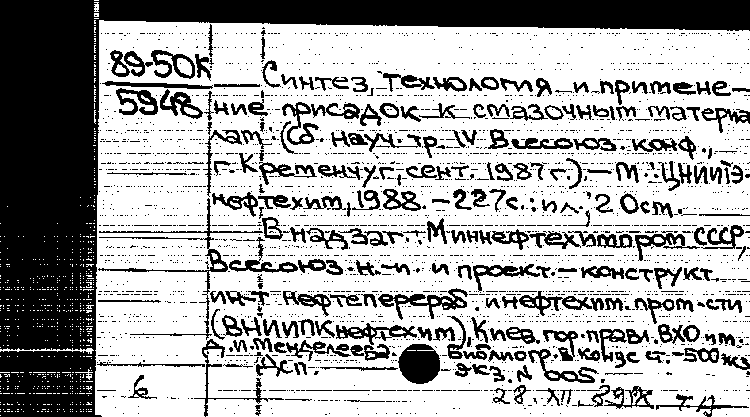 89-50К
5948
Синтез, технология и примене-
ние присадок к смазочным материа
лам: (Сб. науч. тр. IV Всесоюз. конф.,
г. Кременчуг, сент. 1987 г.).— М.: ЦНИИТЭ-
нефтехим, 1988. — 227с.: ил.; 20см.
В надзаг.: Миннефтехимпром СССР,
Всесоюз. н.-и. и проект.-конструкт.
ин-т нефтеперераб. и нефтехим. пром-сти
(ВНИИПКнефтехим), Киев. гор. правл. ВХО им.
Д.И. Менделеева. Библиогр. в конце ст. - 500 экз
Дсп. Экз. N 005.
6 28. XII.